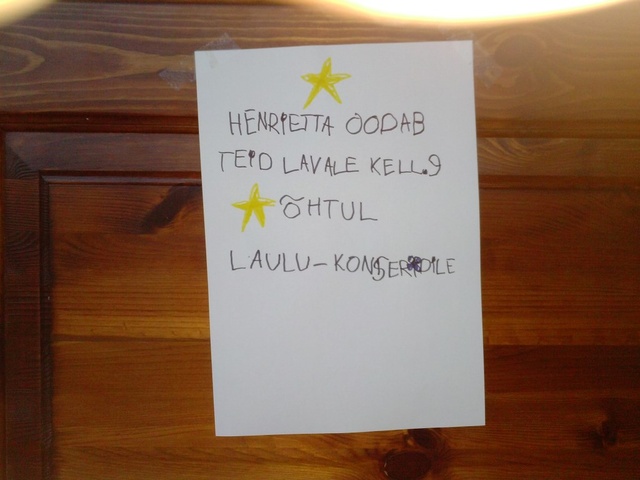 HENRIETTA OODAB
TEID LAVALE KELL.9
ÕHTUL
LAULU-KONSERDILE